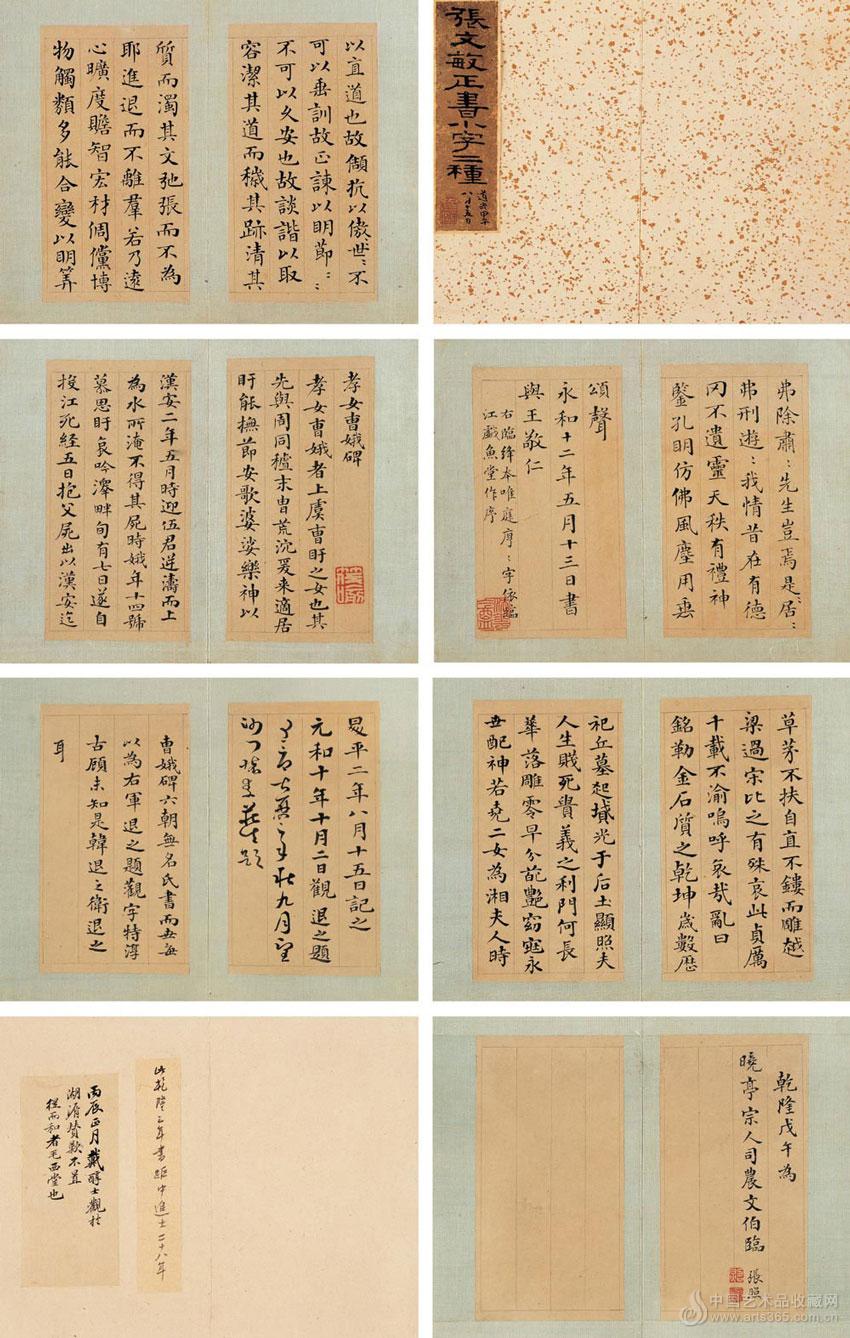 張文敏正書小字二種
道光甲午
八月十五日
以直道也故頡抗以傲世〻不
可以垂訓故正諫以明節〻〻
不可以久安也故談諧以取
容潔其道而穢其跡清其
質而濁其文弛張而不為
耶進退而不離羣若乃遠
心曠度贍智宏材倜儻博
物觸類多能合變以明筭
弗除肅〻先生豈焉是〻居〻
弗刑遊〻我情昔在有德
罔不遺靈天秩有禮神
鑒孔明仿佛風塵用垂
頌聲
永和十二年五月十三日書
與王敬仁
右臨絳本唯庭序〻字依臨
江戲魚堂作序
孝女曹娥碑
孝女曹娥者上虞曹盱之女也其
先與周同穠末曹荒沉爰來適居
盱能撫節安歌婆娑樂神以
漢安二年五月時迎伍君逆濤而上
為水所淹不得其屍時娥年十四號
慕思盱哀吟澤畔旬有七日遂自
投江死経五日抱父屍出以漢安迄
草芽不扶自直不鏤而雕越
梁過宋比之有殊哀此貞厲
千載不渝嗚呼哀哉亂曰
銘勒金石質之乾坤歲數歷
祀丘墓起墳光于后土顯照夫
人生賤死貴義之利門何長
華落雕零早分葩艷窈窕永
世配神若堯二女為湘夫人時
昇平二年八月十五日記之
元和十年十月二日觀退之題
九月望
題
曹娥碑六朝無名氏書而世每
以為右軍退之題觀字特淳
古顧未知是韓退之衛退之
耳
乾隆戊午為
曉亭宗人司農文伯臨
張照
此乾隆三年書距中進士二十八年
丙辰正月戴醇士觀於
湖濱賛歎不置
從而和者毛西堂也
中国艺术品收藏网
www.arts365.com.cn